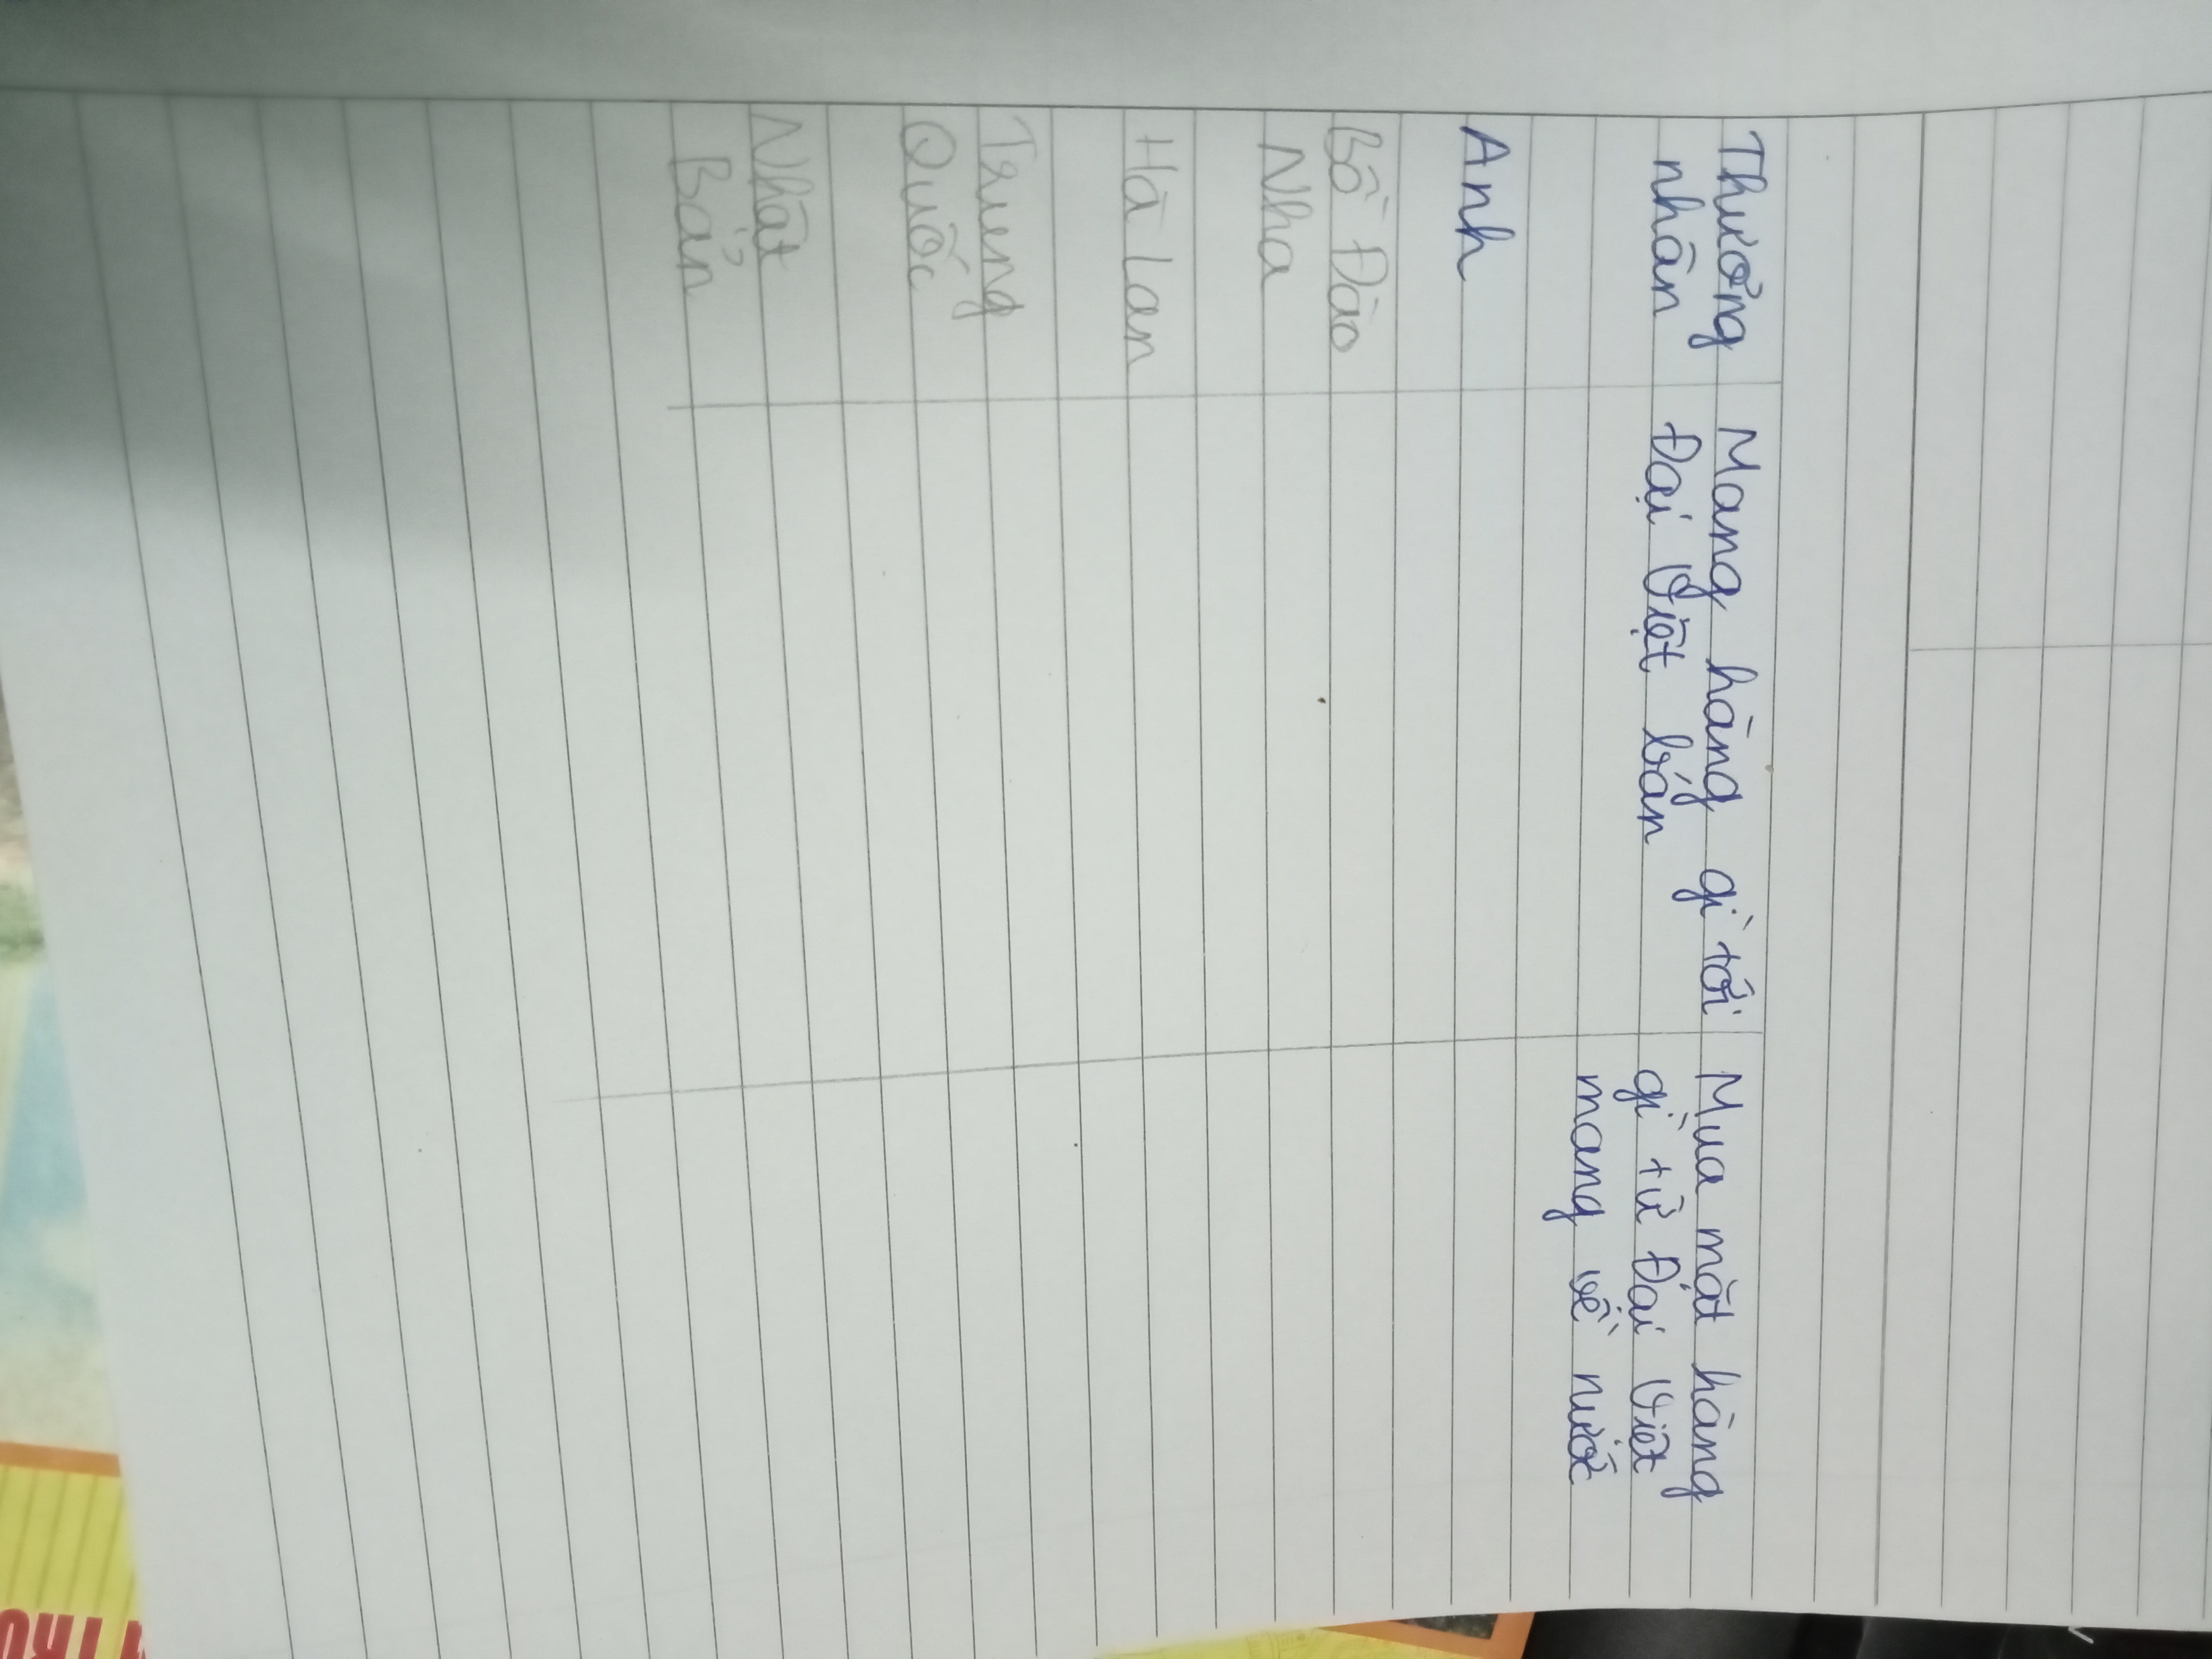 Thương nhân
Mang hàng gì tới
Đại Việt bán
Mua mặt hàng
gì từ Đại Việt
mang về nước
Anh
Bồ Đào
Nha
Hà Lan
Trung
Quốc
Nhật
Bản